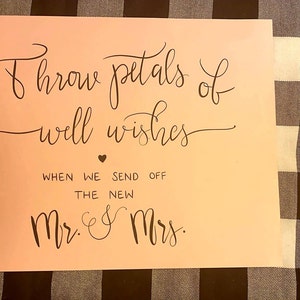 Throw petals of
well wishes
WHEN WE SEND OFF
THE NEW
Mr. & Mrs.